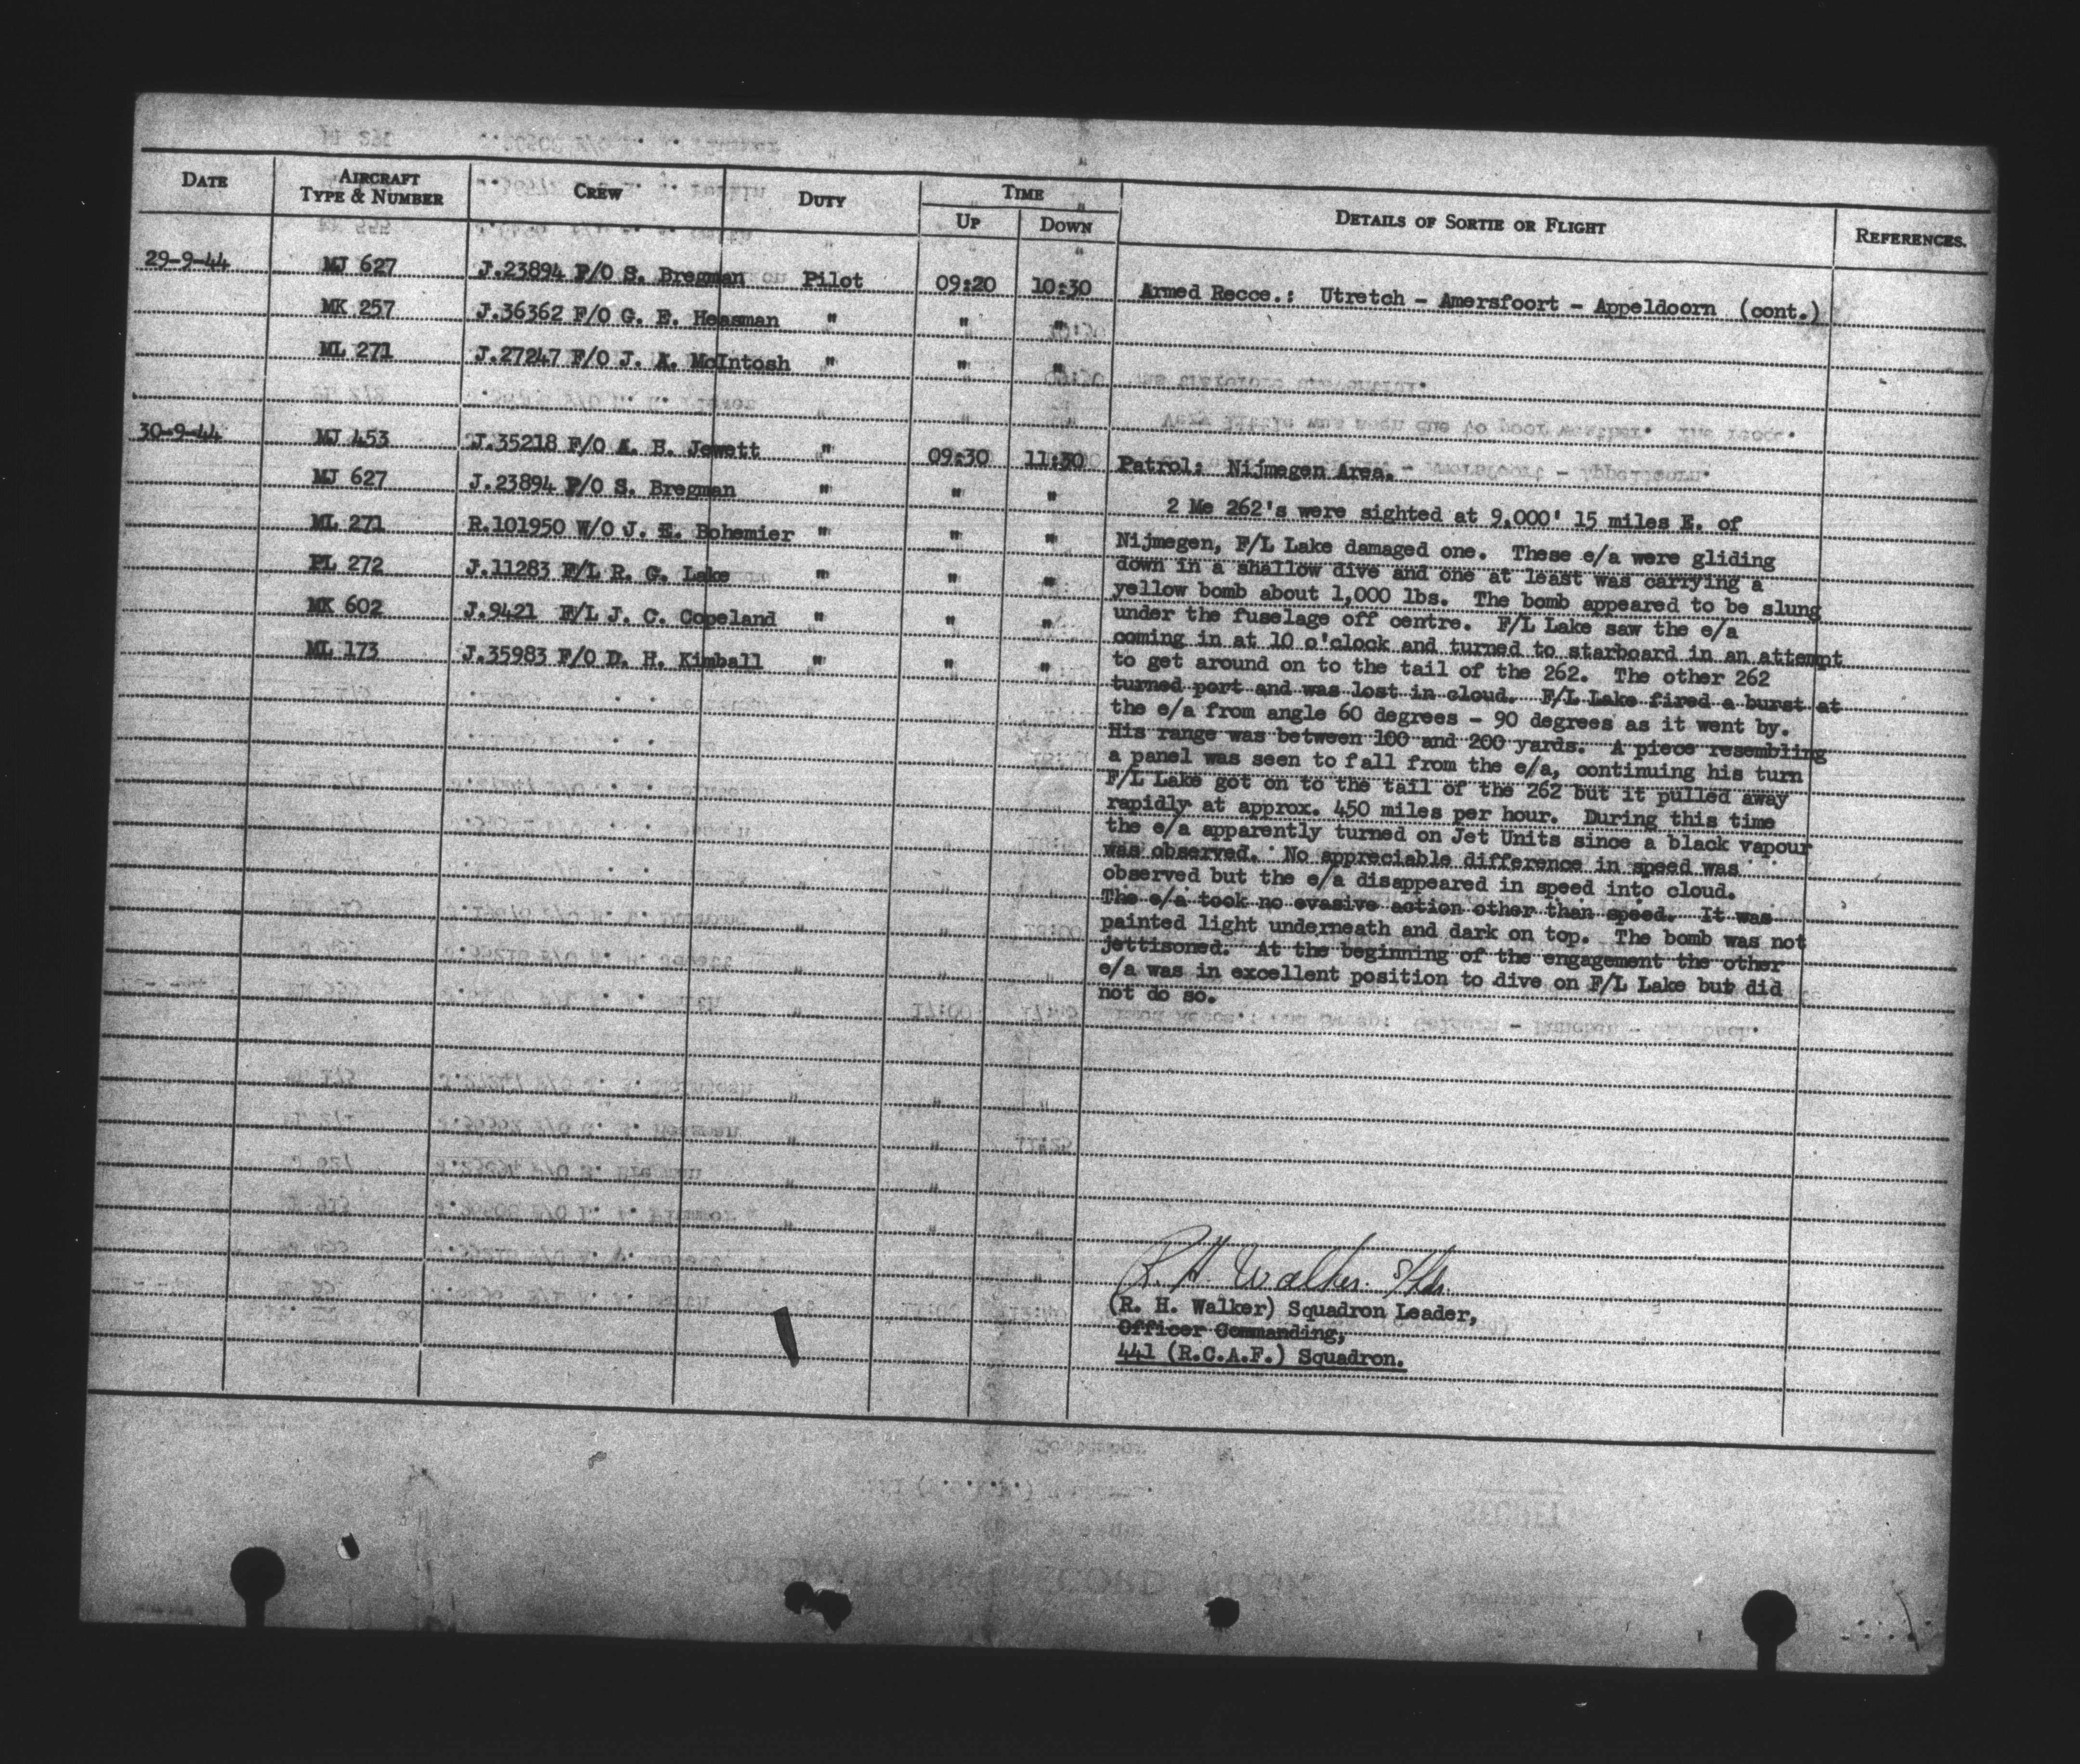 DATE AIRCRAFT TYPE & NUMBER CREW DUTY TIME UP DOWN DETAILS OF SORTIE OR FLIGHT REFERENCES.
29-9-44 MJ 627 J.23894 F/O S. Bregman Pilot 09:20 10:30 Armed Recce.: Utretch - Amersfoort - Appeldoorn (cont.)
MK 257 J.36362 F/O G. E. Heasman " " "
ML 271 J.27247 F/O J. A. McIntosh " " "
30-9-44 MJ 453 J.35218 F/O A. B. Jewett " 09:30 11:30 Patrol: Nijmegen Area.
MJ 627 J.23894 F/O S. Bregman " " "
ML 271 R.101950 W/O J. E. Bohemier " " "
PL 272 J.11283 F/L R. G. Lake " " "
MK 602 J.9421 F/L J. C. Copeland " " "
ML 173 J.35983 F/O D. H. Kimball " " "
2 Me 262's were sighted at 9,000' 15 miles E. of
Nijmegen, F/L Lake damaged one. These e/a were gliding
down in a shallow dive and one at least was carrying a
yellow bomb about 1,000 lbs. The bomb appeared to be slung
under the fuselage off centre. F/L Lake saw the e/a
coming in at 10 o'clock and turned to starboard in an attempt
to get around on to the tail of the 262. The other 262
turned port and was lost in cloud. F/L Lake fired a burst at
the e/a from angle 60 degrees - 90 degrees as it went by.
His range was between 100 and 200 yards. A piece resembling
a panel was seen to fall from the e/a, continuing his turn
F/L Lake got on to the tail of the 262 but it pulled away
rapidly at approx. 450 miles per hour. During this time
the e/a apparently turned on Jet Units since a black vapour
was observed. No appreciable difference in speed was
observed but the e/a disappeared in speed into cloud.
The e/a took no evasive action other than speed. It was
painted light underneath and dark on top. The bomb was not
jettisoned. At the beginning of the engagement the other
e/a was in excellent position to dive on F/L Lake but did
not do so.
R. H. Walker S/Ldr.
(R. H. Walker) Squadron Leader,
Officer Commanding,
441 (R.C.A.F.) Squadron.